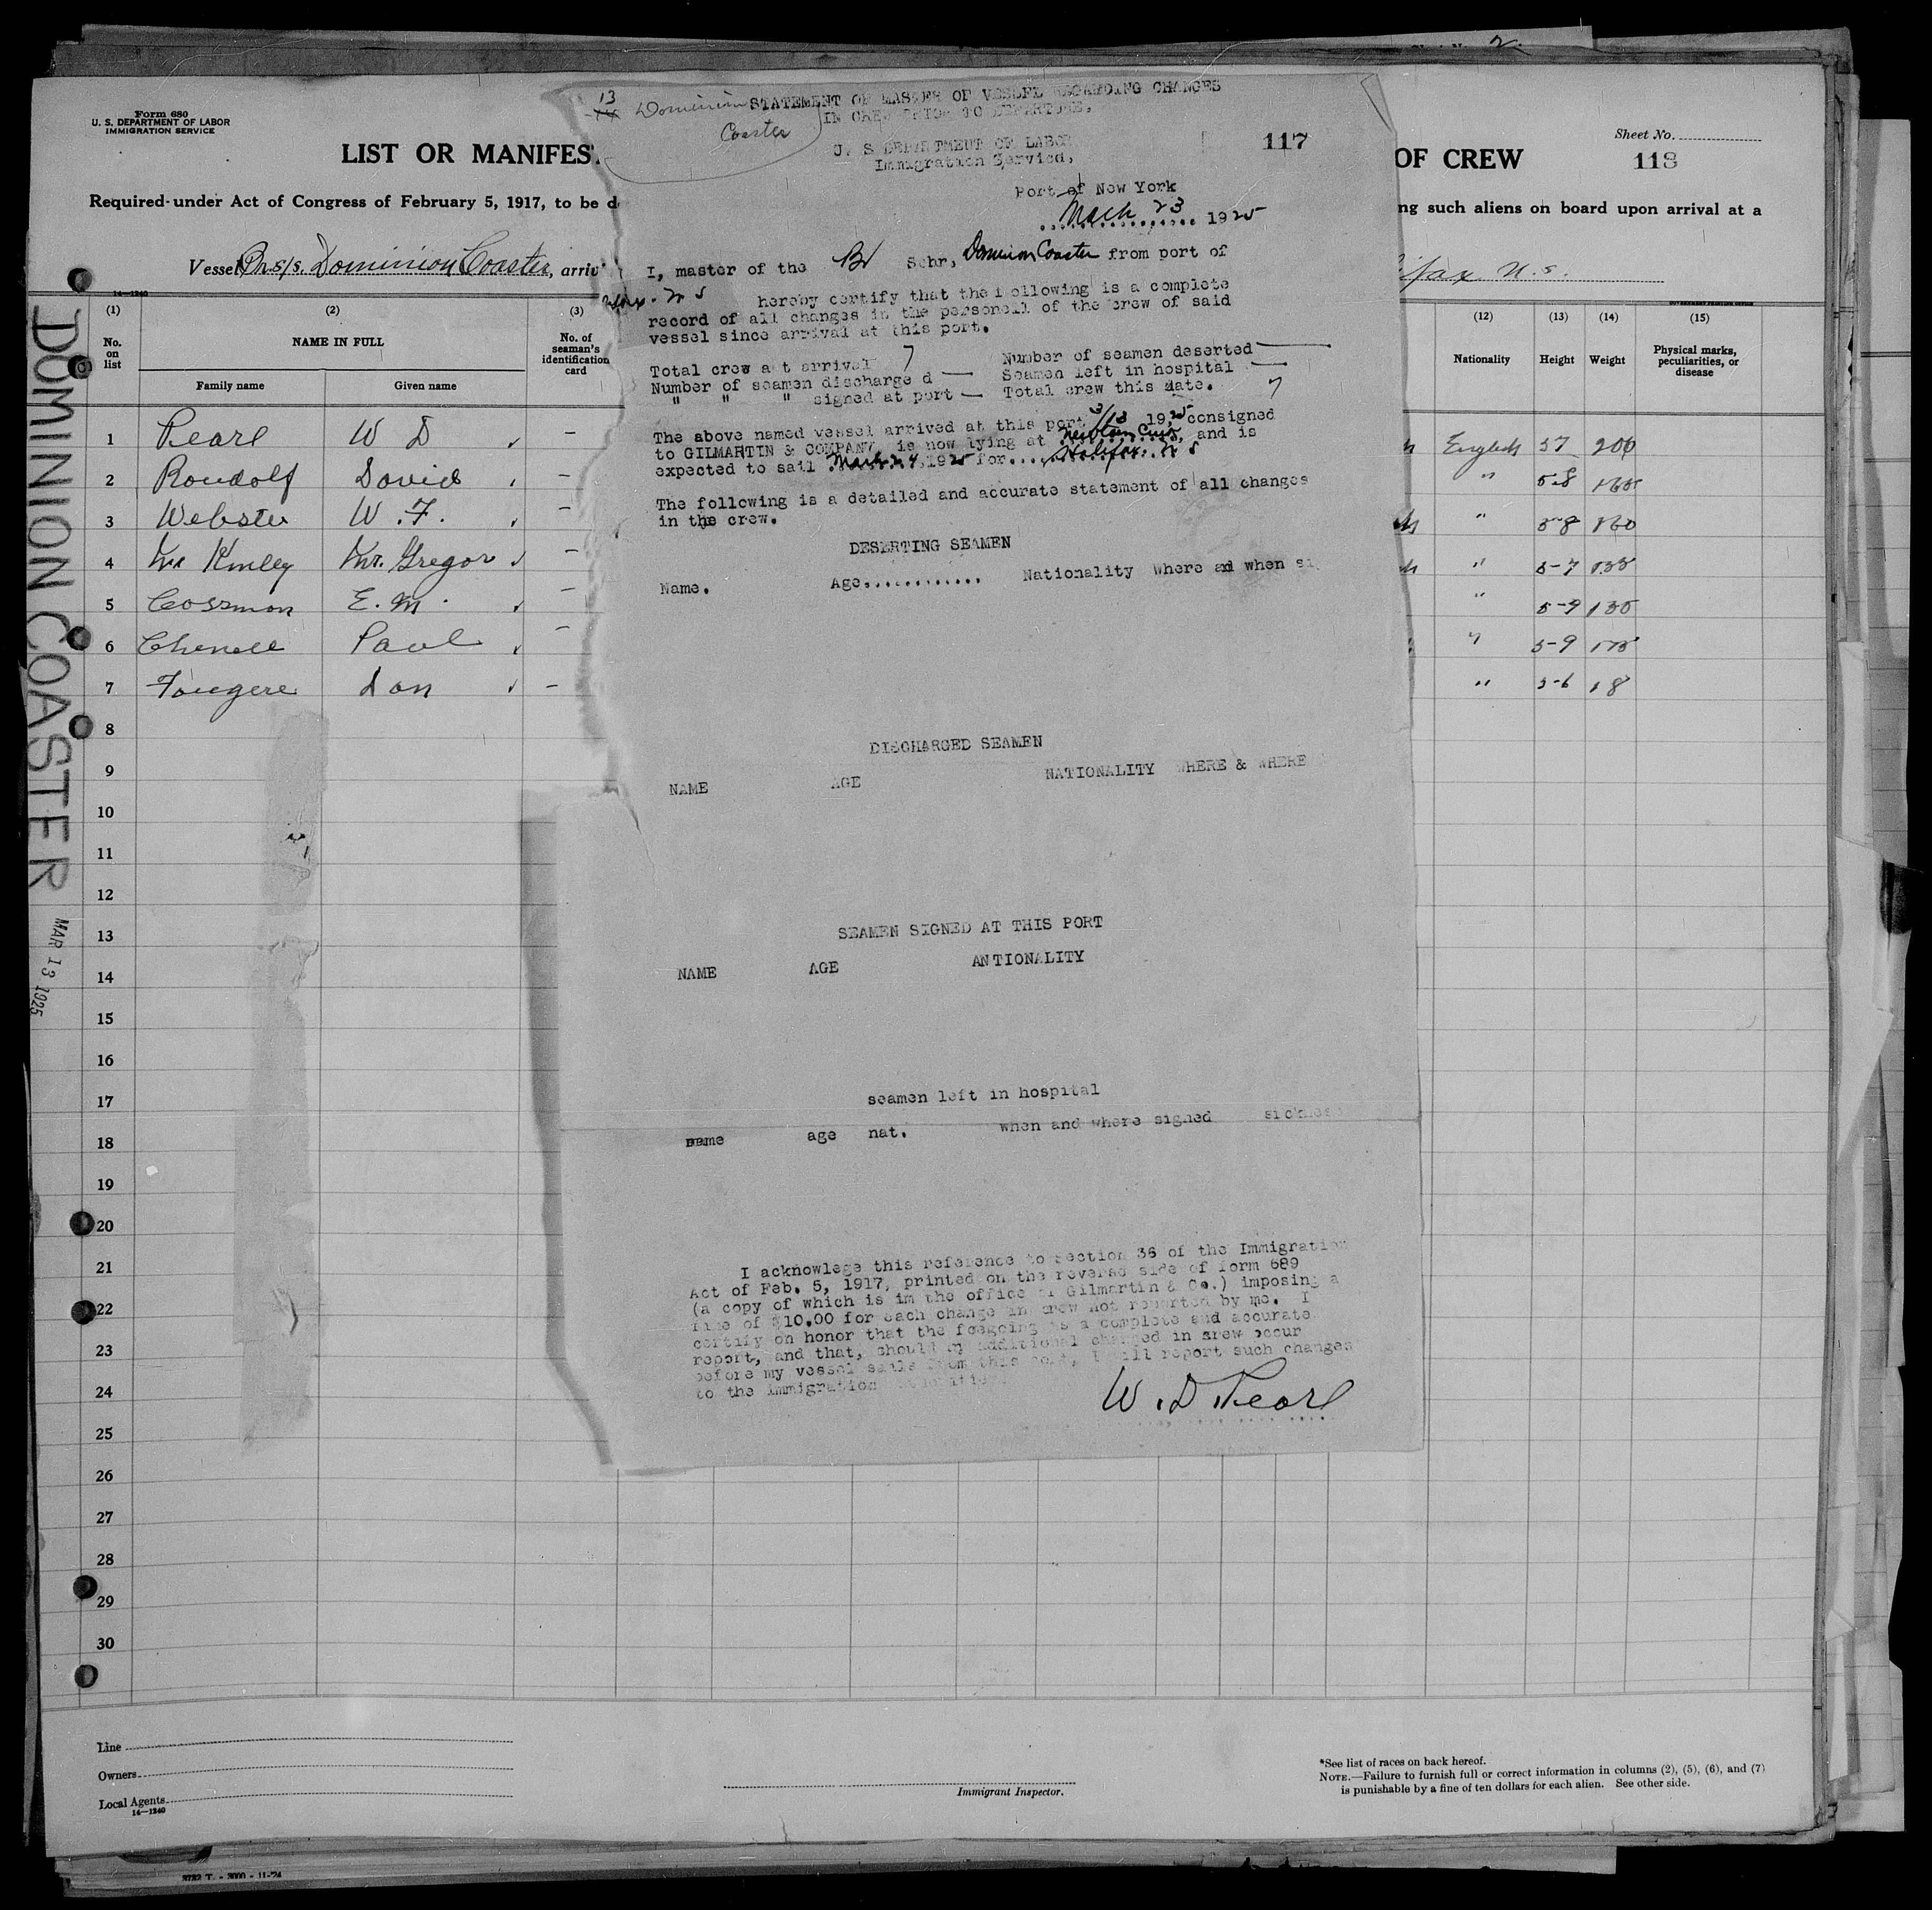 Form 680
U. S. DEPARTMENT OF LABOR
IMMIGRATION SERVICE
LIST OR MANIFES
OF CREW
Sheet No.
118
Required under Act of Congress of February 5, 1917, to be d
ng such aliens on board upon arrival at a
Vessel Br s/s. Dominion Coaster, arriv
ifax N.S.
14—1240
(1) (2) (3) (12) (13) (14) (15)
No. on list
NAME IN FULL
Family name Given name
No. of seaman's identification card
Nationality Height Weight
Physical marks, peculiarities, or disease
1 Pearl W D – English 57 200
2 Roudolf David – " 5-8 165
3 Webster W. F. – " 5-8 160
4 Mc Kinley Mc. Gregor – " 5-7
5 Cossmon E. M. – " 5-9 135
6 Chenell Paul – " 5-9
7 Fougere Dan – " 5-6
8
9
10
11
12
13
14
15
16
17
18
19
20
21
22
23
24
25
26
27
28
29
30
Line
Owners
Local Agents
14—1240
Immigrant Inspector.
*See list of races on back hereof.
NOTE.—Failure to furnish full or correct information in columns (2), (5), (6), and (7)
is punishable by a fine of ten dollars for each alien. See other side.
DOMINION COASTER
MAR 13 1925
13
Dominion
Coaster
STATEMENT OF MASTER OF VESSEL REGARDING CHANGES
IN CREW PRIOR TO DEPARTURE.
U. S DEPARTMENT OF LABOR
Immigration Servicd,
117
Port of New York
Mach 23 1925
I, master of the Br Schr, Dominion Coaster from port of
N S hereby certify that the following is a complete
record of all changes in the personell of the crew of said
vessel since arrival at this port.
Total crew a t arrival 7 Number of seamen deserted —
Number of seamen discharge d — Seamen left in hospital —
" " " signed at port — Total crew this date. 7
The above named vessel arrived at this port 3/13 1925 consigned
to GILMARTIN & COMPANY is now lying at Newtown Creek, and is
expected to sail March 24, 1925 for Halifax N S
The following is a detailed and accurate statement of all changes
in the crew.
DESERTING SEAMEN
Name. Age............ Nationality Where ad when si
DISCHARGED SEAMEN
NAME AGE NATIONALITY WHERE & WHERE
SEAMEN SIGNED AT THIS PORT
NAME AGE ANTIONALITY
seamen left in hospital
name age nat. when and where signed sickness
I acknowlege this reference to section 36 of the Immigration
Act of Feb. 5, 1917, printed on the reverse side of form 689
(a copy of which is im the office of Gilmartin & Co.) imposing a
fine of $10.00 for each change in crew not reported by me. I
certify on honor that the foegoing is a complete and accurate
report, and that, should any additional changed in srew occur
before my vessel sails from this port, I will report such changes
to the immigration
W. D Pearl
3732 T. - 3000 - 11-24